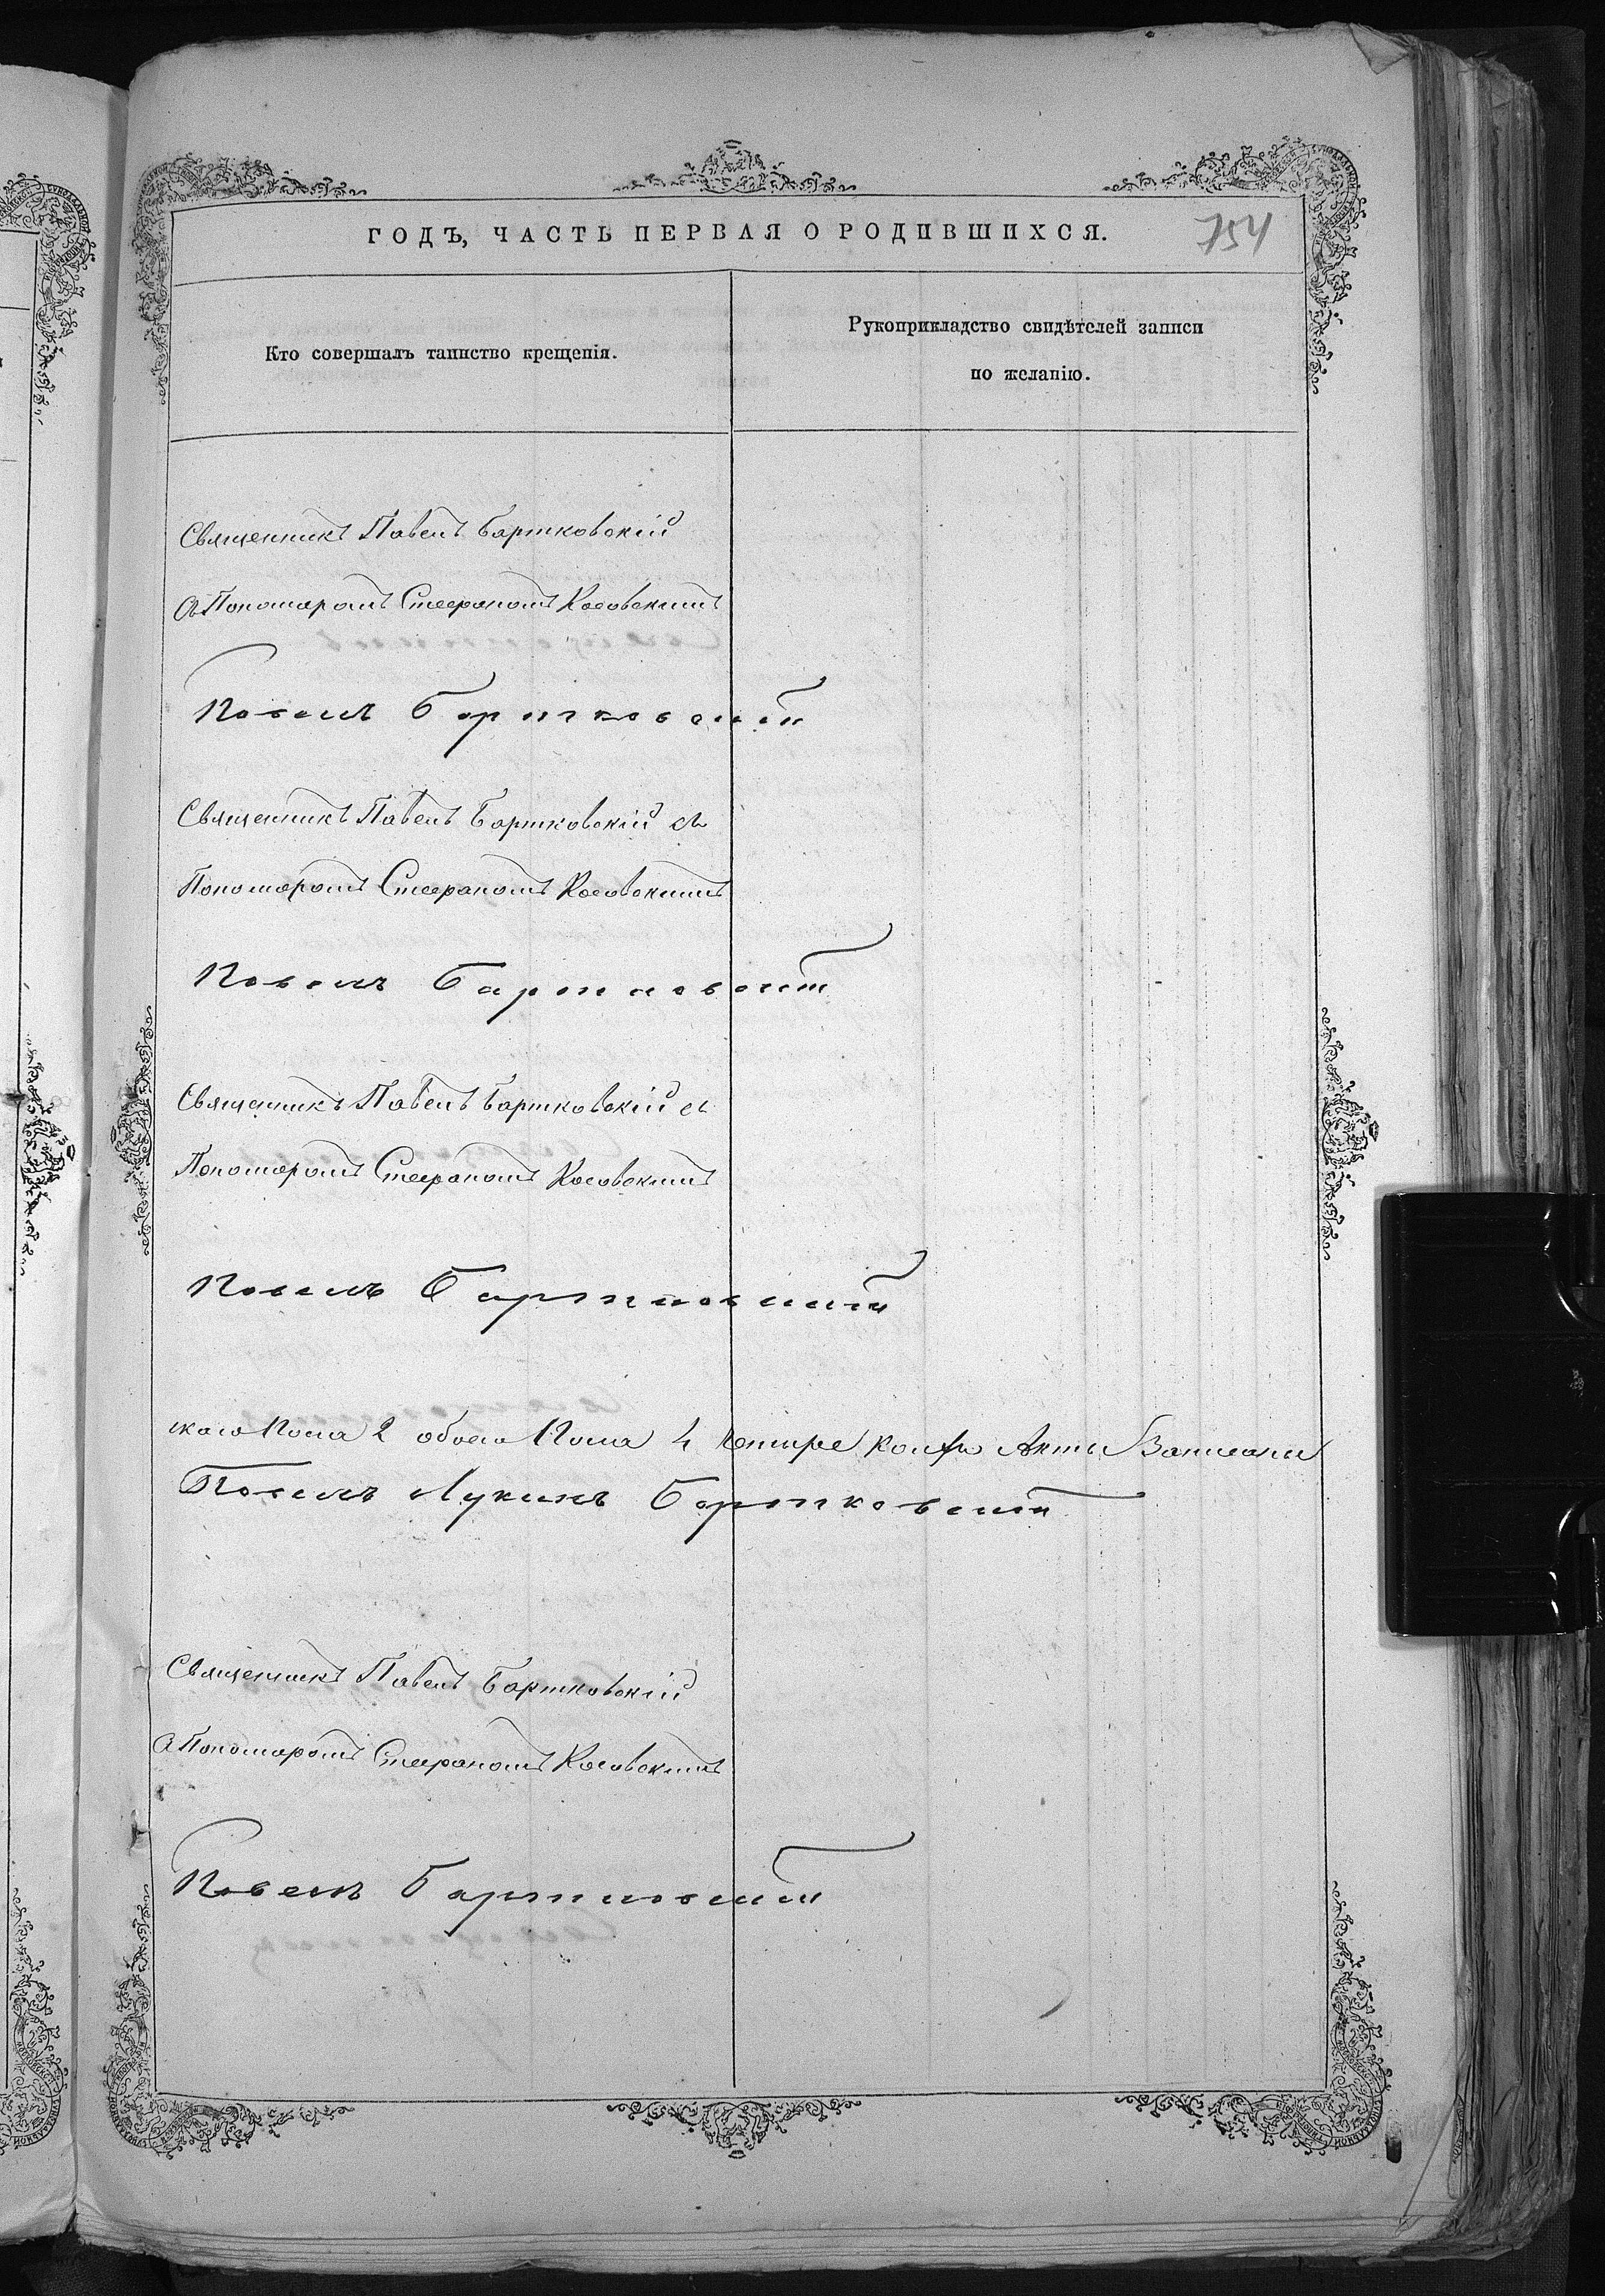 ГОДЪ, ЧАСТЬ ПЕРВАЯ О РОДИВШИХСЯ.
754
Кто совершалъ таинство крещенія.
Рукоприкладство свидѣтелей записи
по желанію.
Священникъ Павелъ Бартковскій
съ Пономаромъ Стефаномъ Косовскимъ
Павелъ Бартковскій
Священникъ Павелъ Бартковскій съ
Пономаромъ Стефаномъ Косовскимъ
Павелъ Бартковскій
Священникъ Павелъ Бартковскій съ
Пономаромъ Стефаномъ Косовскимъ
Павелъ Бартковскій
ского Пола 2 обоего Пола 4 четыре Акты Записаны
Павелъ Лукинъ Бартковскій
Священникъ Павелъ Бартковскій
съ Пономаромъ Стефаномъ Косовскимъ
Павелъ Бартковскій